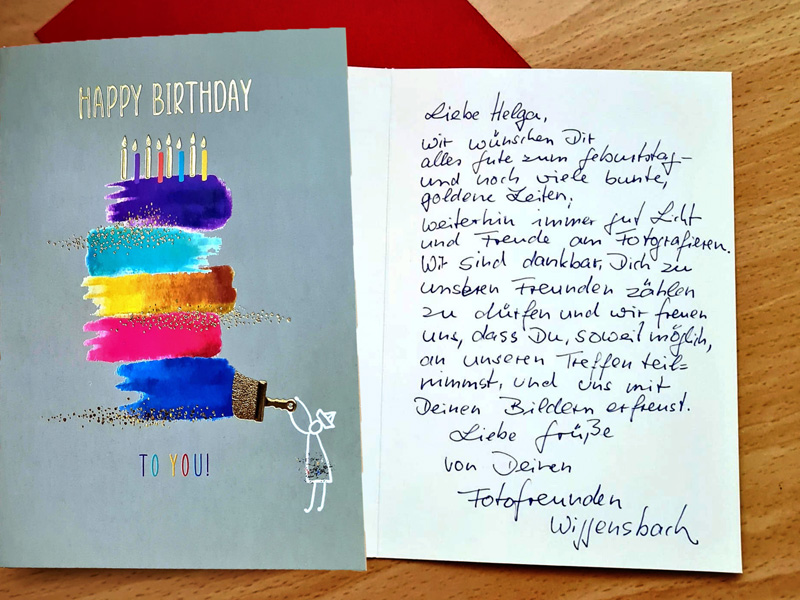 HAPPY BIRTHDAY
TO YOU!
Liebe Helga,
wir wünschen Dir
alles Gute zum Geburtstag –
und noch viele bunte,
goldene Zeiten,
weiterhin immer gut Licht
und Freude am Fotografieren.
Wir sind dankbar, Dich zu
unseren Freunden zählen
zu dürfen und wir freuen
uns, dass Du, soweit möglich,
an unseren Treffen teil=
nimmst, und uns mit
Deinen Bildern erfreust.
Liebe Grüße
von Deinen
Fotofreunden
Wiggensbach